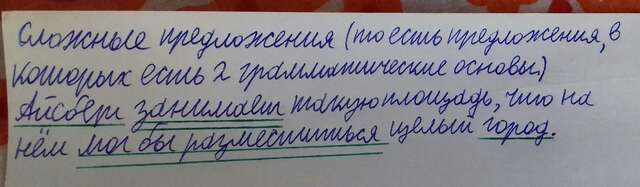 Сложные предложения (то есть предложения, в
которых есть 2 грамматические основы)
Айсберг занимает такую площадь, что на
нём мог бы разместиться целый город.